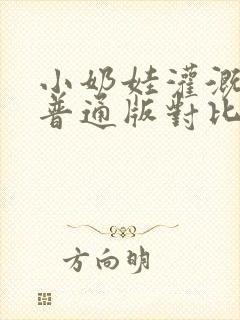 小奶娃灌溉
普通版對比
方向明